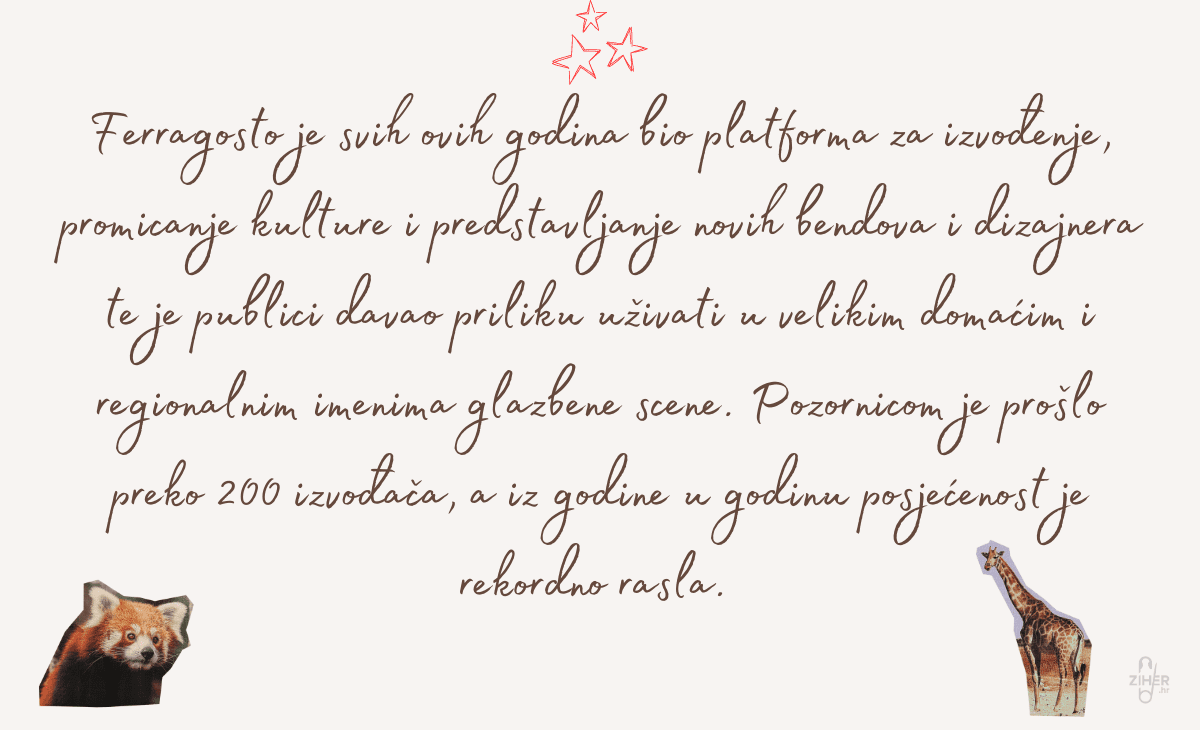 Ferragosto je svih ovih godina bio platforma za izvođenje,
promicanje kulture i predstavljanje novih bendova i dizajnera
te je publici davao priliku uživati u velikim domaćim i
regionalnim imenima glazbene scene. Pozornicom je prošlo
preko 200 izvođača, a iz godine u godinu posjećenost je
rekordno rasla.
ZIHER
.hr